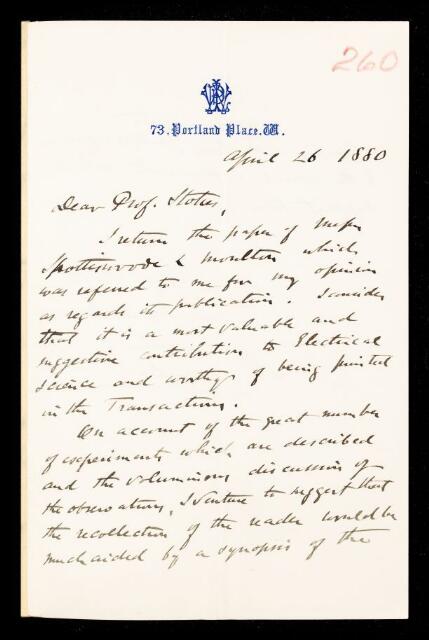 260
73, Portland Place. W.
April 26 1880
Dear Prof. Stokes,
I return the paper of Messrs
Spottiswoode & Moulton which
was referred to me for my opinion
as regards its publication. I consider
that it is a most valuable and
suggestive contribution to Electrical
Science and worthy of being printed
in the Transactions.
On account of the great number
of experiments which are described
and the voluminous discussion of
the observations, I venture to suggest that
the recollection of the reader would be
much aided by a synopsis of the